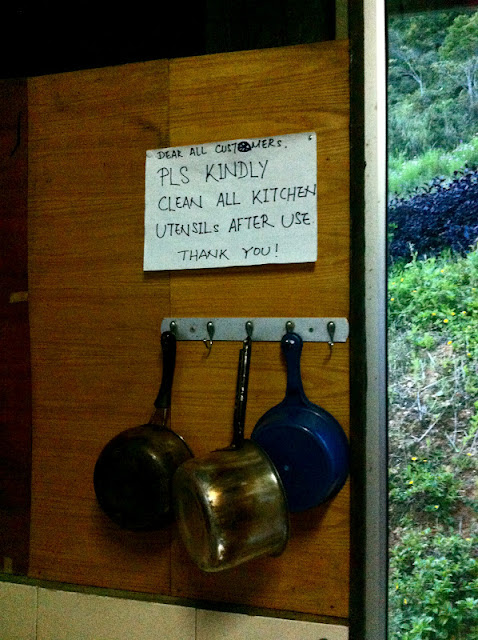 DEAR ALL CUSTOMERS.
PLS KINDLY
CLEAN ALL KITCHEN
UTENSILS AFTER USE.
THANK YOU!